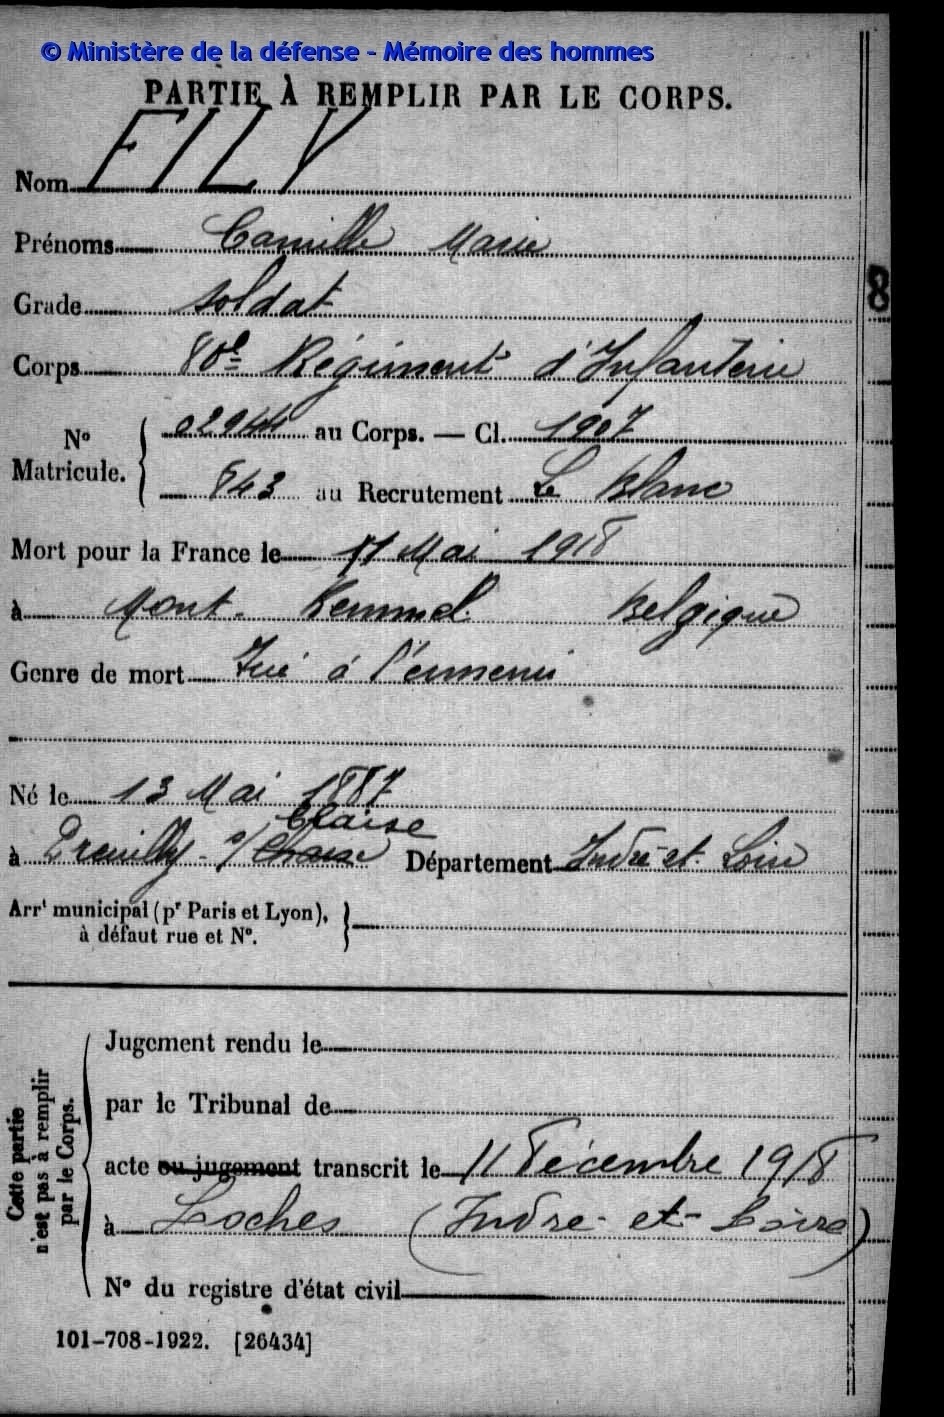 © Ministère de la défense - Mémoire des hommes
PARTIE À REMPLIR PAR LE CORPS.
Nom FILY
Prénoms Camille Marie
Grade soldat
Corps 80e Régiment d'Infanterie
N° Matricule. 02944 au Corps. — Cl. 1907
843 au Recrutement Le Blanc
Mort pour la France le 11 Mai 1918
à Mont-Kemmel Belgique
Genre de mort Tué à l'ennemi
Né le 13 Mai 1887
Claise
à Preuilly s/ Chaise Département Indre-et-Loire
Arrt municipal (pr Paris et Lyon),
à défaut rue et N°.
Cette partie
n'est pas à remplir
par le Corps.
Jugement rendu le
par le Tribunal de
acte ou jugement transcrit le 11 Décembre 1918
à Loches (Indre-et-Loire)
N° du registre d'état civil
101-708-1922. [26434]
8